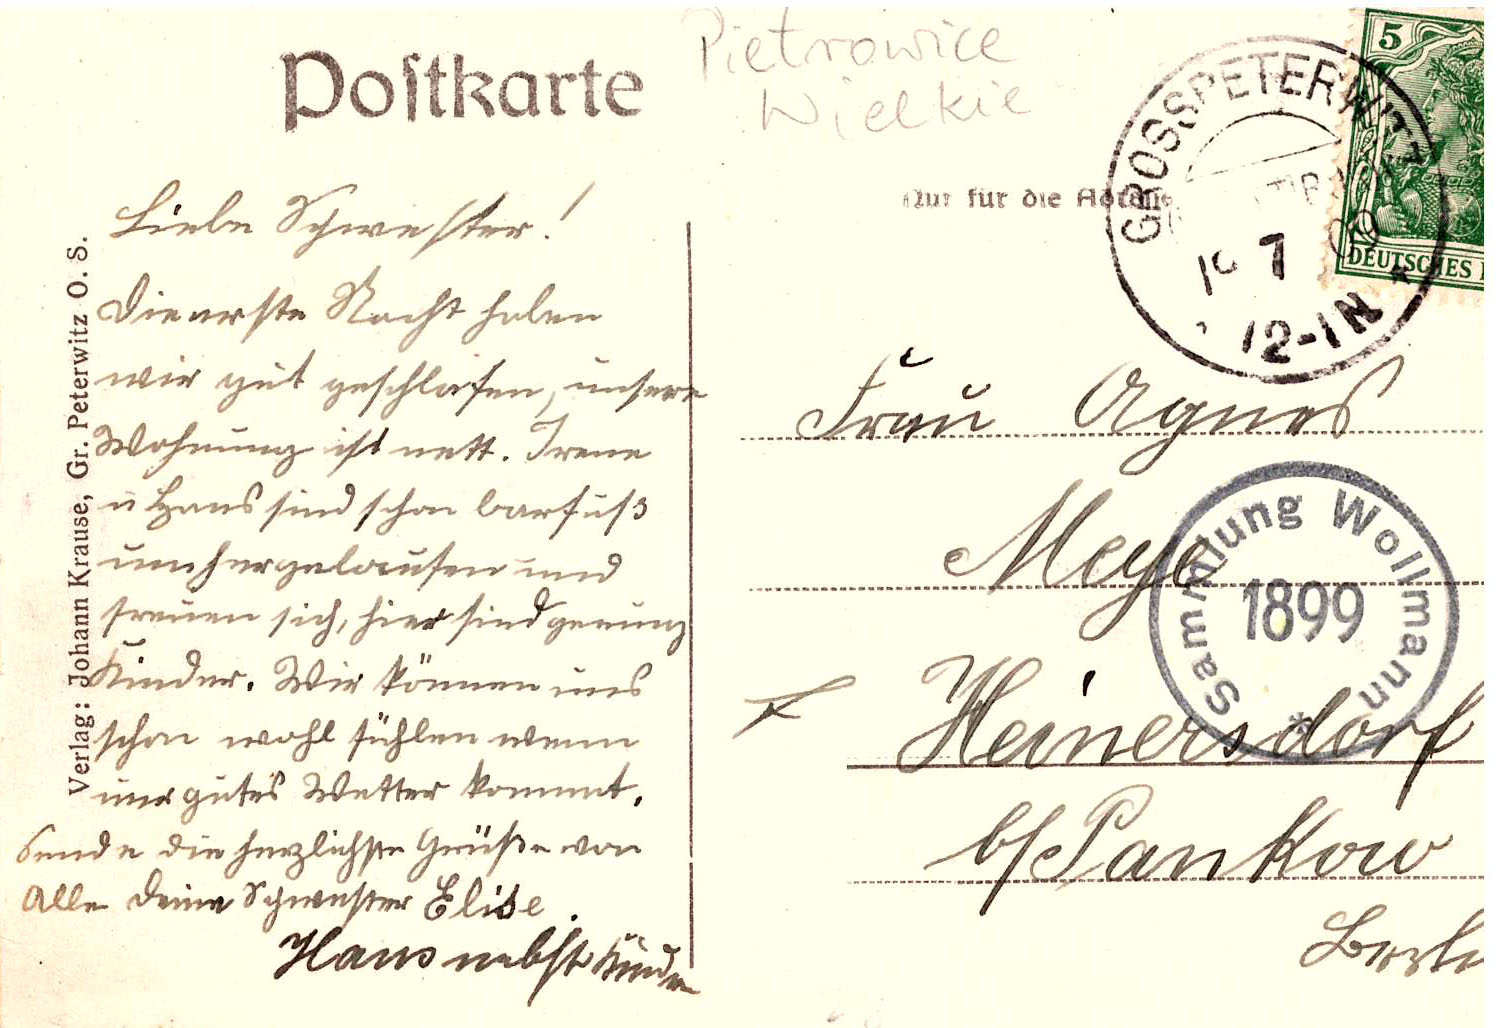 Postkarte
Pietrowice
Wielkie
Nur für die Adresse
GROSSPETERWITZ
7 09
12-1N
5
DEUTSCHES
Verlag: Johann Krause, Gr. Peterwitz O. S.
Liebe Schwester!
Die erste Nacht haben
wir gut geschlafen, unsere
Wohnung ist nett. Irene
u Hans sind schon barfuß
umhergelaufen und
freuen sich, hier sind genung
Kinder. Wir können uns
schon wohl fühlen wenn
nur gutes Wetter kommt.
Sende die herzlichste Grüße von
Alle Deine Schwester Elise.
Hans nebst Kinder
Frau Agnes
Meye
Heinersdorf
b/Pankow
Berlin
Sammlung Wollmann
1899
*